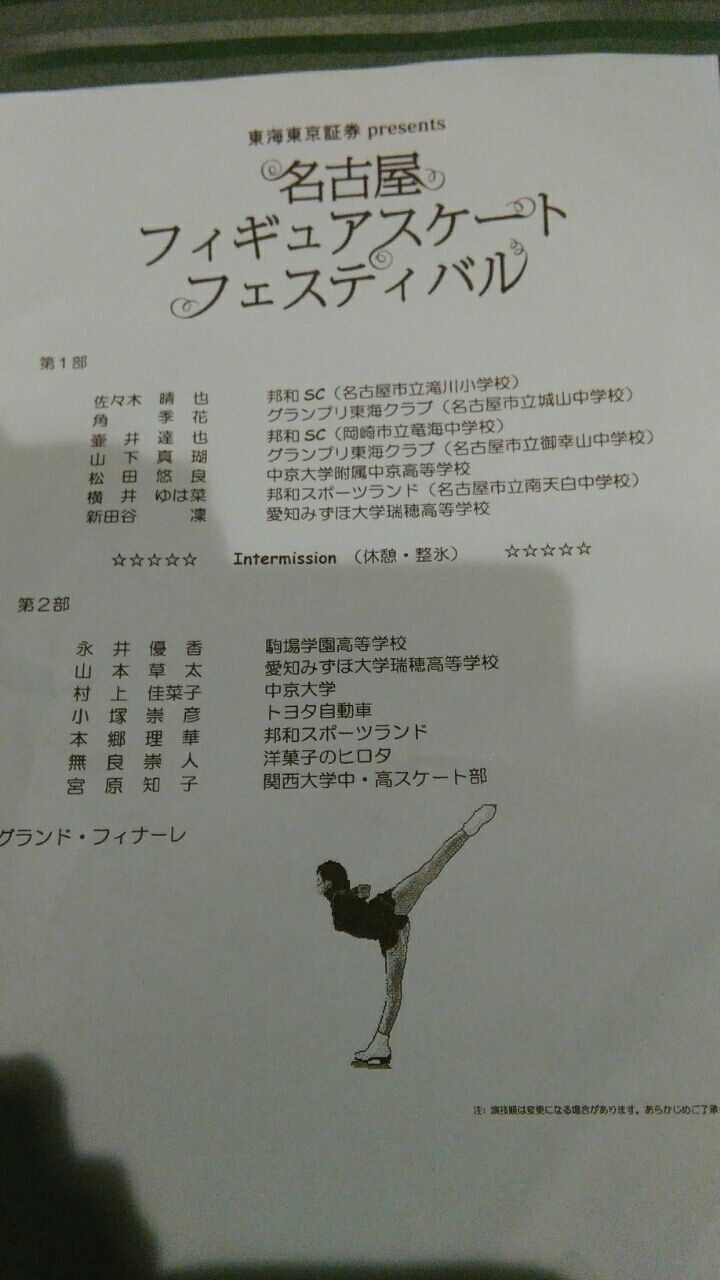 東海東京証券 presents
名古屋
フィギュアスケート
フェスティバル
第1部
佐々木 晴也 邦和SC（名古屋市立滝川小学校）
角 季花 グランプリ東海クラブ（名古屋市立城山中学校）
壷井達也 邦和SC（岡崎市立竜海中学校）
山下真瑚 グランプリ東海クラブ（名古屋市立御幸山中学校）
松田悠良 中京大学附属中京高等学校
横井ゆは菜 邦和スポーツランド（名古屋市立南天白中学校）
新田谷 凜 愛知みずほ大学瑞穂高等学校
☆☆☆☆☆ Intermission （休憩・整氷） ☆☆☆☆☆
第2部
永井優香 駒場学園高等学校
山本草太 愛知みずほ大学瑞穂高等学校
村上佳菜子 中京大学
小塚崇彦 トヨタ自動車
本郷理華 邦和スポーツランド
無良崇人 洋菓子のヒロタ
宮原知子 関西大学中・高スケート部
グランド・フィナーレ
注：演技順は変更になる場合があります。あらかじめご了承